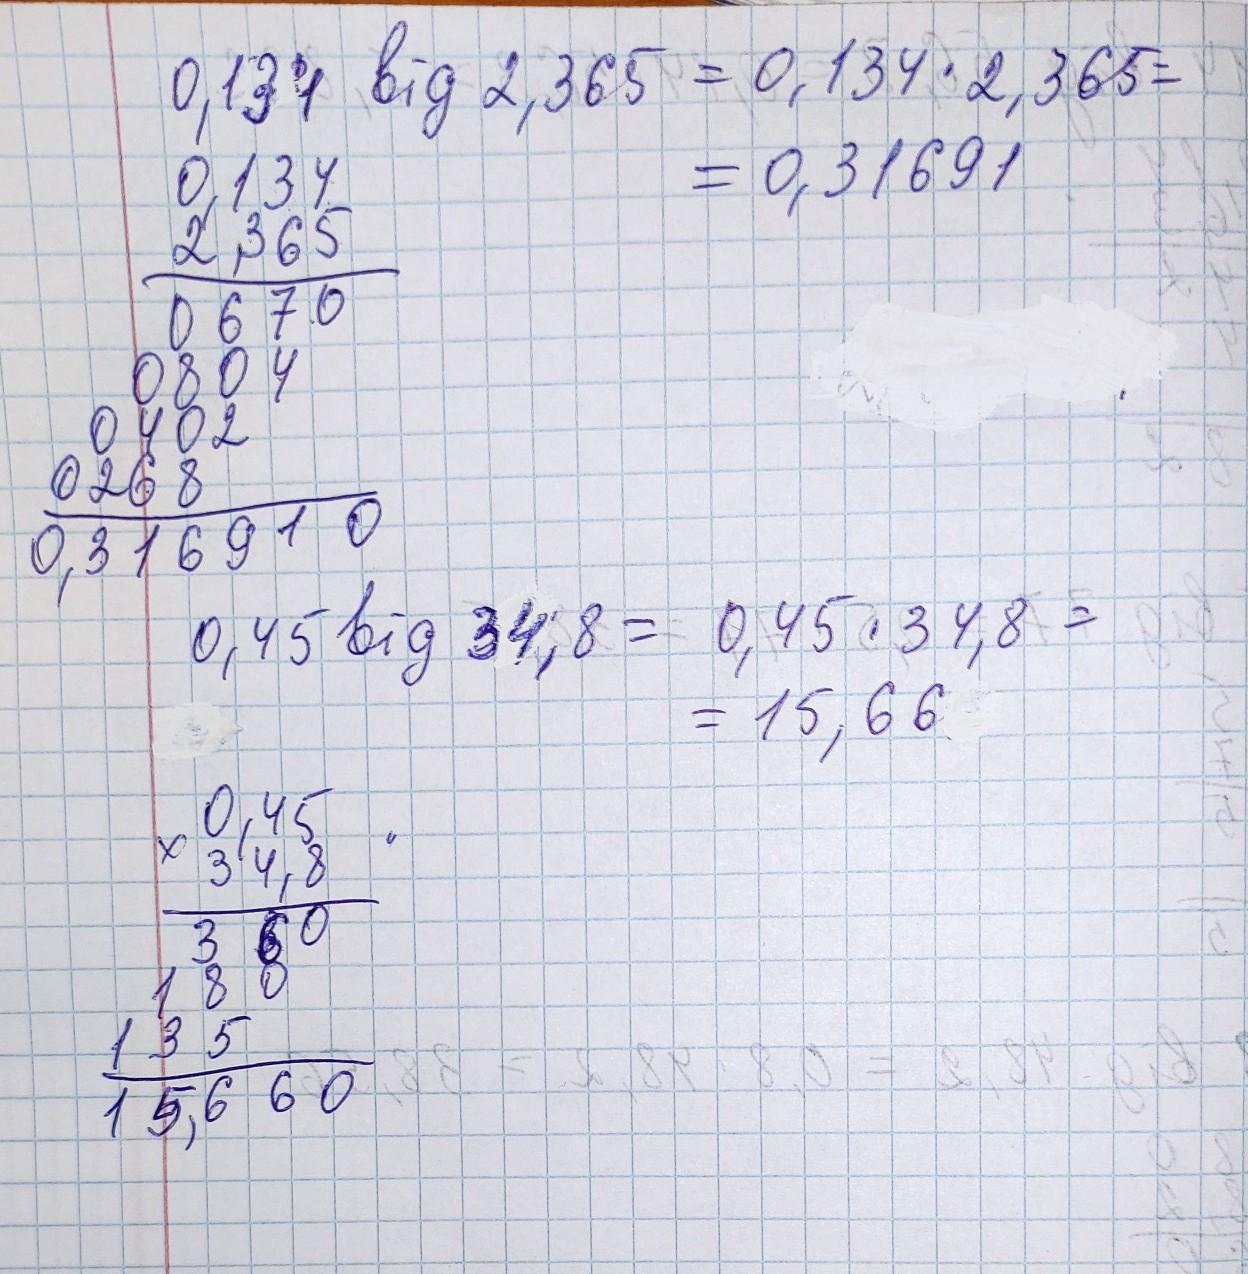 0,134 від 2,365 = 0,134 · 2,365 =
= 0,31691
0,134
2,365
0670
0804
0402
0268
0,316910
0,45 від 34,8 = 0,45 · 34,8 =
= 15,66
0,45
x 34,8
360
180
135
15,660